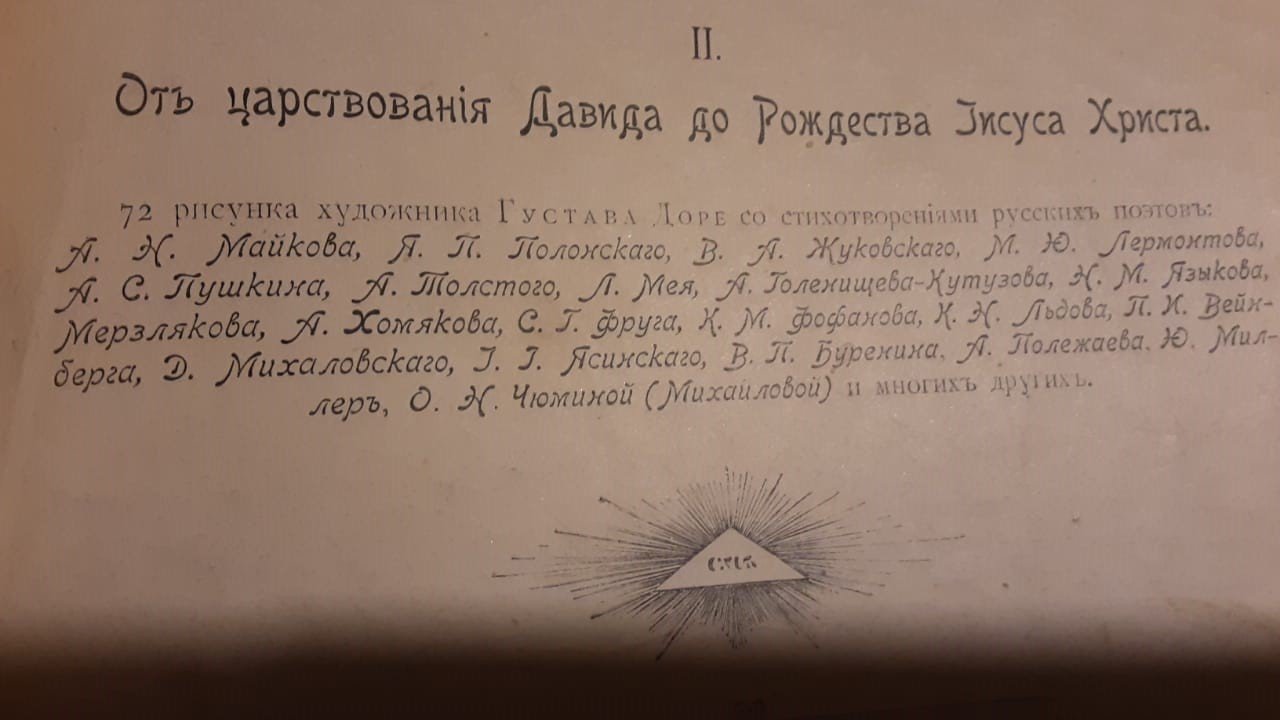 II.
Отъ царствованія Давида до Рождества Іисуса Христа.
72 рисунка художника Густава Доре со стихотвореніями русскихъ поэтовъ:
А. Н. Майкова, Я. П. Полонскаго, В. А. Жуковскаго, М. Ю. Лермонтова,
А. С. Пушкина, А. Толстого, Л. Мея, А. Голенищева-Кутузова, Н. М. Языкова,
Мерзлякова, А. Хомякова, С. Г. Фруга, К. М. Фофанова, К. Н. Льдова, П. И. Вейн-
берга, Д. Михаловскаго, І. І. Ясинскаго, В. П. Буренина, А. Полежаева, Ю. Мил-
леръ, О. Н. Чюминой (Михайловой) и многихъ другихъ.